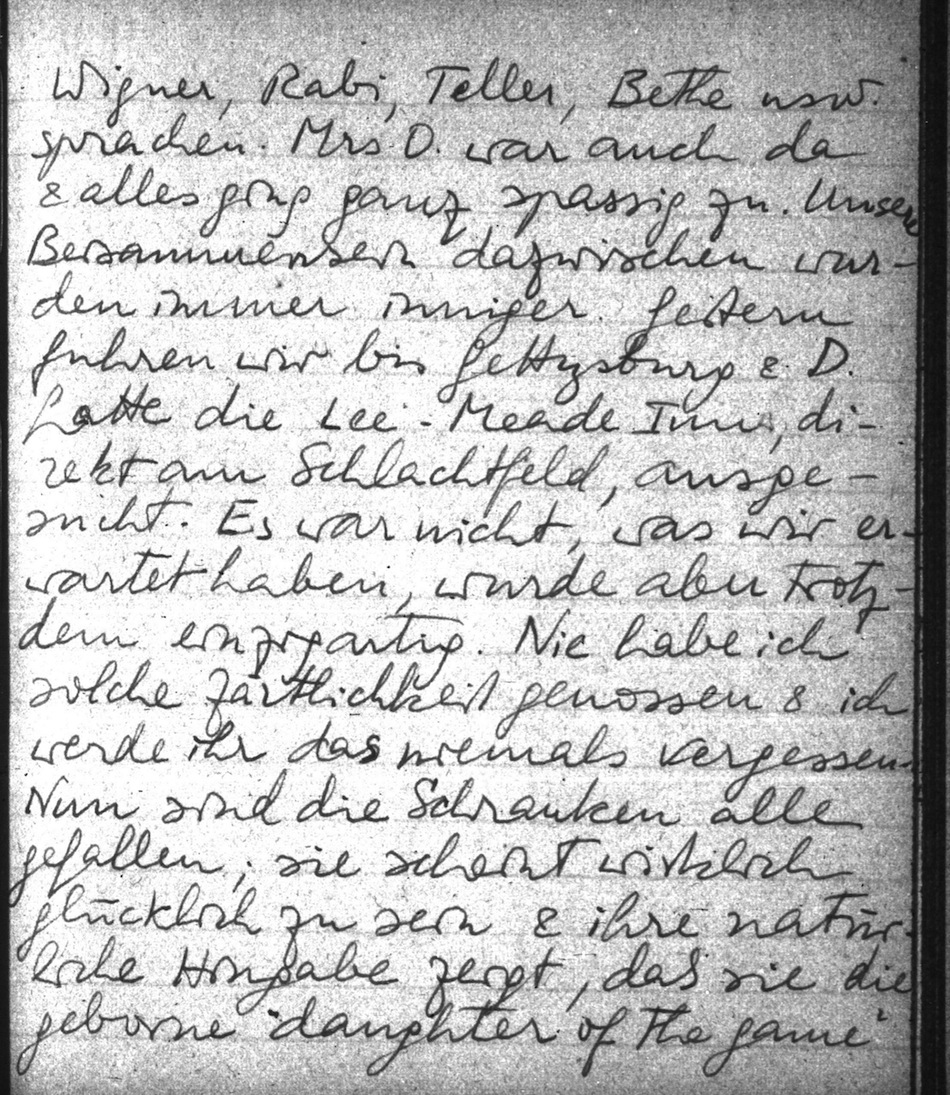 Wigner, Rabi, Teller, Bethe usw.
sprachen. Mrs D. war auch da
& alles ging ganz spassig zu. Unsere
Beisammensein dazwischen wur-
den immer inniger. Gestern
fuhren wir bis Gettysburg & D.
hatte die Lee-Meade Inn, di-
rekt am Schlachtfeld, ausge-
sucht. Es war nicht, was wir er-
wartet haben, wurde aber trotz-
dem einzigartig. Nie habe ich
solche Zärtlichkeit genossen & ich
werde ihr das niemals vergessen.
Nun sind die Schranken alle
gefallen; sie scheint wirklich
glücklich zu sein & ihre natür-
liche Hingabe zeigt, daß sie die
geborne "daughter of the game"